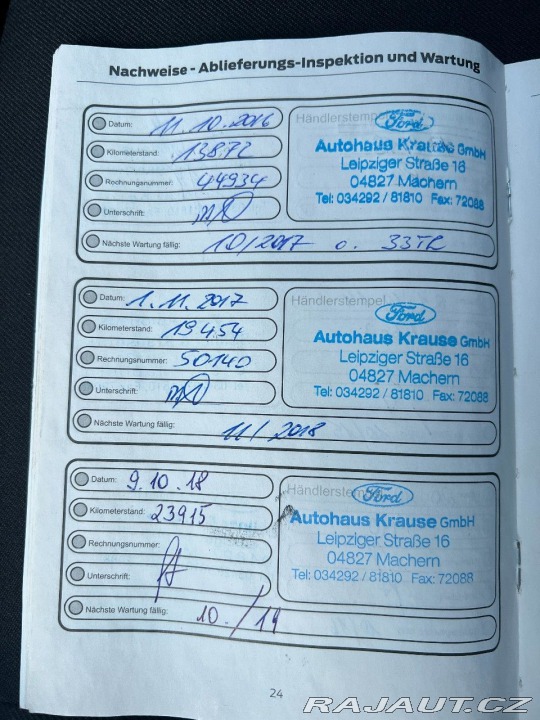 Nachweise - Ablieferungs-Inspektion und Wartung
Datum: 11.10.2016
Kilometerstand: 13872
Rechnungsnummer: 44934
Unterschrift:
Nächste Wartung fällig: 10/2017 o. 33TK
Händlerstempel
Ford
Autohaus Krause GmbH
Leipziger Straße 16
04827 Machern
Tel: 034292 / 81810 Fax: 72088
Datum: 1.11.2017
Kilometerstand: 19454
Rechnungsnummer: 50140
Unterschrift:
Nächste Wartung fällig: 11/2018
Händlerstempel
Ford
Autohaus Krause GmbH
Leipziger Straße 16
04827 Machern
Tel: 034292 / 81810 Fax: 72088
Datum: 9.10.18
Kilometerstand: 23915
Rechnungsnummer:
Unterschrift:
Nächste Wartung fällig: 10./19
Händlerstem
Ford
Autohaus Krause GmbH
Leipziger Straße 16
04827 Machern
Tel: 034292 / 81810 Fax: 72088
24
RAJAUT.CZ